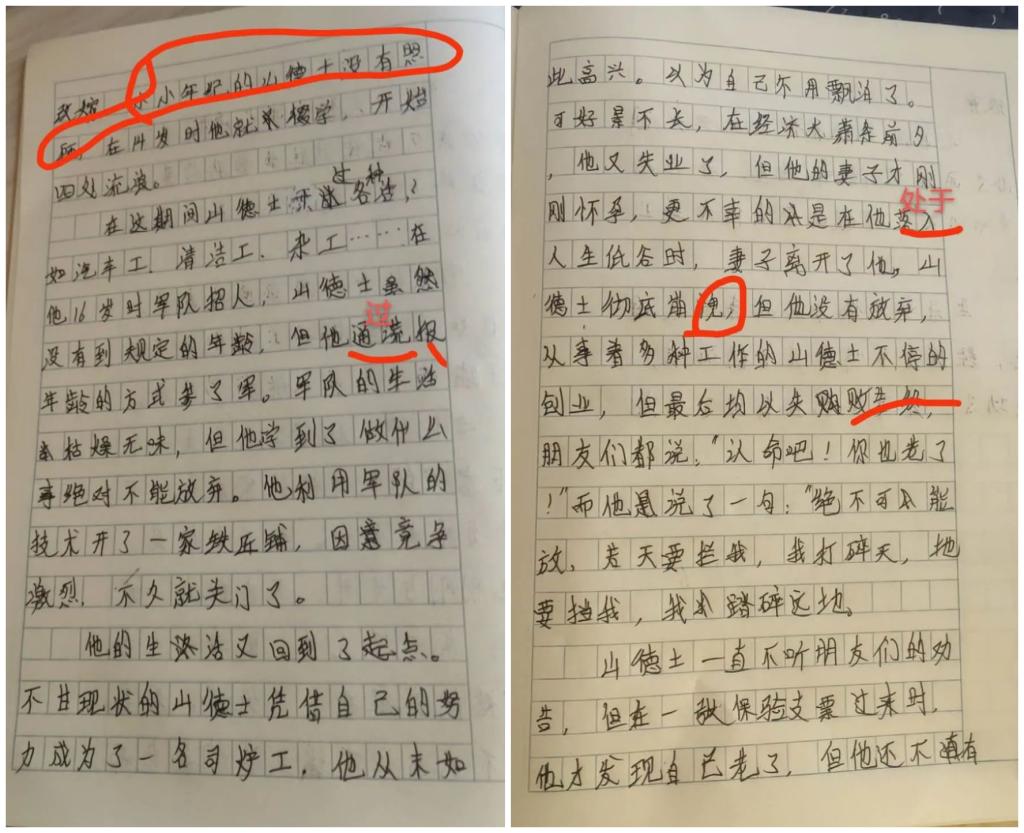 改嫁。小小年纪的山德士没有照
所，在14岁时他就辍学，开始
四处流浪。
在这期间山德士干过各种活，
如汽车工、清洁工、杂工……在
他16岁时军队招人，山德士虽然
没有到规定的年龄，但他通过谎报
年龄的方式参了军。军队的生活
枯燥无味，但他学到了做什么
事绝对不能放弃。他利用军队的
技术开了一家铁匠铺，因意竞争
激烈，不久就关门了。
他的生活又回到了起点。
不甘现状的山德士凭借自己的努
力成为了一名司炉工，他从未如
此高兴。以为自己不用飘泊了。
可好景不长，在经济大萧条前夕
，他又失业了，但他的妻子才刚
处于
刚怀孕，更不幸的是在他落入
人生低谷时，妻子离开了他。山
德士彻底崩溃，但他没有放弃，
从事者多种工作的山德士不停的
创业，但最后均以失败告终，
朋友们都说："认命吧！你也老了
！"而他是说了一句："绝不可能
放，若天要拦我，我打碎天，地
要挡我，我踏碎这地。
山德士一直不听朋友们的劝
告，但在一张保验支票过来时，
他才发现自己老了，但他还不有